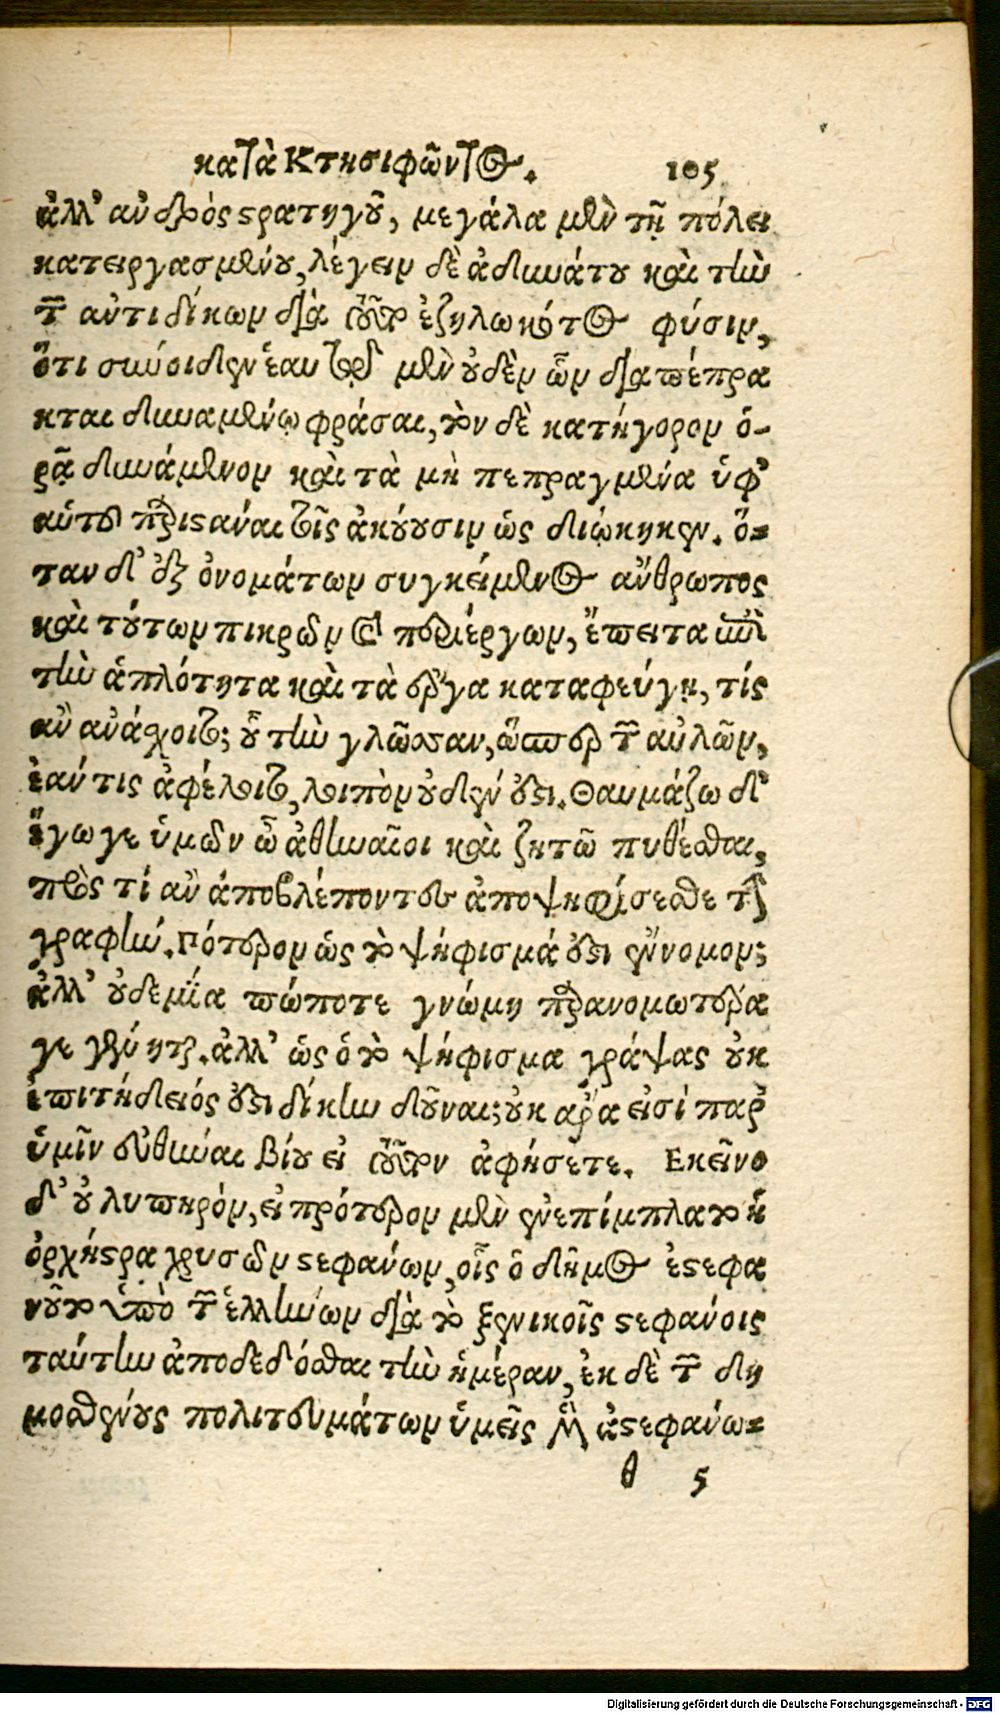 κατὰ Κτησιφῶντος. 105
ἀλλ' ἀνδρὸς στρατηγοῦ, μεγάλα μὲν τὴν πόλει
κατειργασμένου, λέγειν δὲ ἀδυνάτου καὶ τὴν
τῶν ἀντιδίκων διὰ τοῦτο ἐζηλωκότος φύσιν,
ὅτι σύνοιδεν ἑαυτῷ μὲν οὐδὲν ὧν διαπέπρα
κται δυναμένῳ φράσαι, τὸν δὲ κατήγορον ὁ-
ρᾷ δυνάμενον καὶ τὰ μὴ πεπραγμένα ὑφ'
αὑτοῦ παριστάναι τοῖς ἀκούουσιν ὡς διῴκηκεν. ὅ-
ταν δ' ἐξ ὀνομάτων συγκείμενος ἄνθρωπος
καὶ τούτων πικρῶν καὶ περιέργων, ἔπειτα ἐπὶ
τὴν ἁπλότητα καὶ τὰ ἔργα καταφεύγῃ, τίς
ἂν ἀνάσχοιτο; οὗ τὴν γλῶσσαν, ὥσπερ τῶν αὐλῶν,
ἐάν τις ἀφέλοιτο, λοιπὸν οὐδέν ἐστι. Θαυμάζω δ'
ἔγωγε ὑμῶν ὦ ἀθηναῖοι καὶ ζητῶ πυθέσθαι,
πρὸς τί ἂν ἀποβλέποντες ἀποψηφίσεσθε τὴν
γραφήν. Πότερον ὡς τὸ ψήφισμά ἐστι ἔννομον;
ἀλλ' οὐδεμία πώποτε γνώμη παρανομωτέρα
γε γεγένηται. ἀλλ' ὡς ὁ τὸ ψήφισμα γράψας οὐκ
ἐπιτήδειός ἐστι δίκην δοῦναι; οὐκ ἄρα εἰσὶ παρ'
ὑμῖν εὔθυναι βίου εἰ τοῦτον ἀφήσετε. Ἐκεῖνο
δ' οὐ λυπηρὸν, εἰ πρότερον μὲν ἐνεπίμπλατο ἡ
ὀρχήστρα χρυσῶν στεφάνων, οἷς ὁ δῆμος ἐστεφα
νοῦτο ὑπὸ τῶν ἑλλήνων διὰ τὸ ξενικοῖς στεφάνοις
ταύτην ἀποδεδόσθαι τὴν ἡμέραν, ἐκ δὲ τῶν δη
μοσθένους πολιτευμάτων ὑμεῖς μὲν ἀστεφάνω-
θ 5
Digitalisierung gefördert durch die Deutsche Forschungsgemeinschaft - DFG